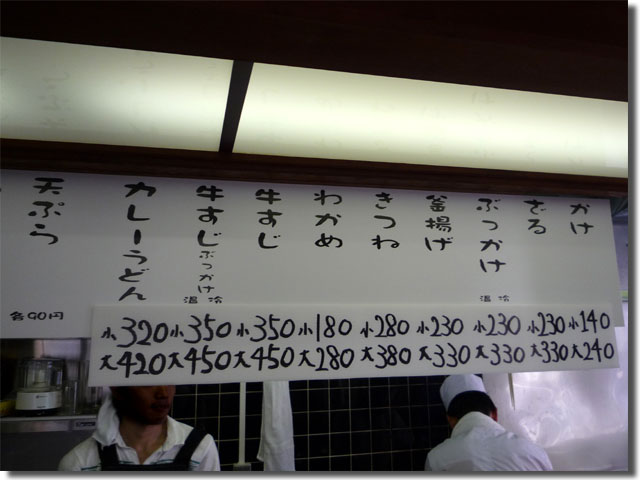 かけ
ざる
ぶっかけ
温 冷
釜揚げ
きつね
わかめ
牛すじ
牛すじぶっかけ
温 冷
カレーうどん
天ぷら
各90円
小320 小350 小350 小180 小280 小230 小230 小230 小140
大420 大450 大450 大280 大380 大330 大330 大330 大240